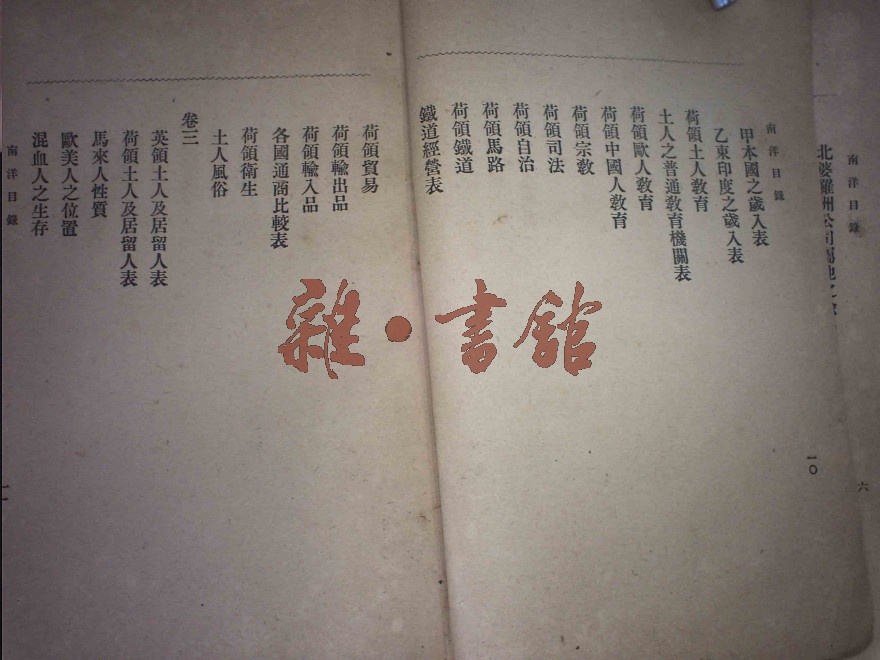 南洋目錄
六
北婆羅洲公司屬地之
南洋目錄
甲本國之歲入表
乙東印度之歲入表
荷領土人教育
土人之普通教育機關表
荷領歐人教育
荷領中國人教育
荷領宗教
荷領司法
荷領自治
荷領馬路
荷領鐵道
鐵道經營表
一〇
荷領貿易
荷領輸出品
荷領輸入品
各國通商比較表
荷領衛生
土人風俗
卷三
英領土人及居留人表
荷領土人及居留人表
馬來人性質
歐美人之位置
混血人之生存
南洋目錄
一一
雜·書舘